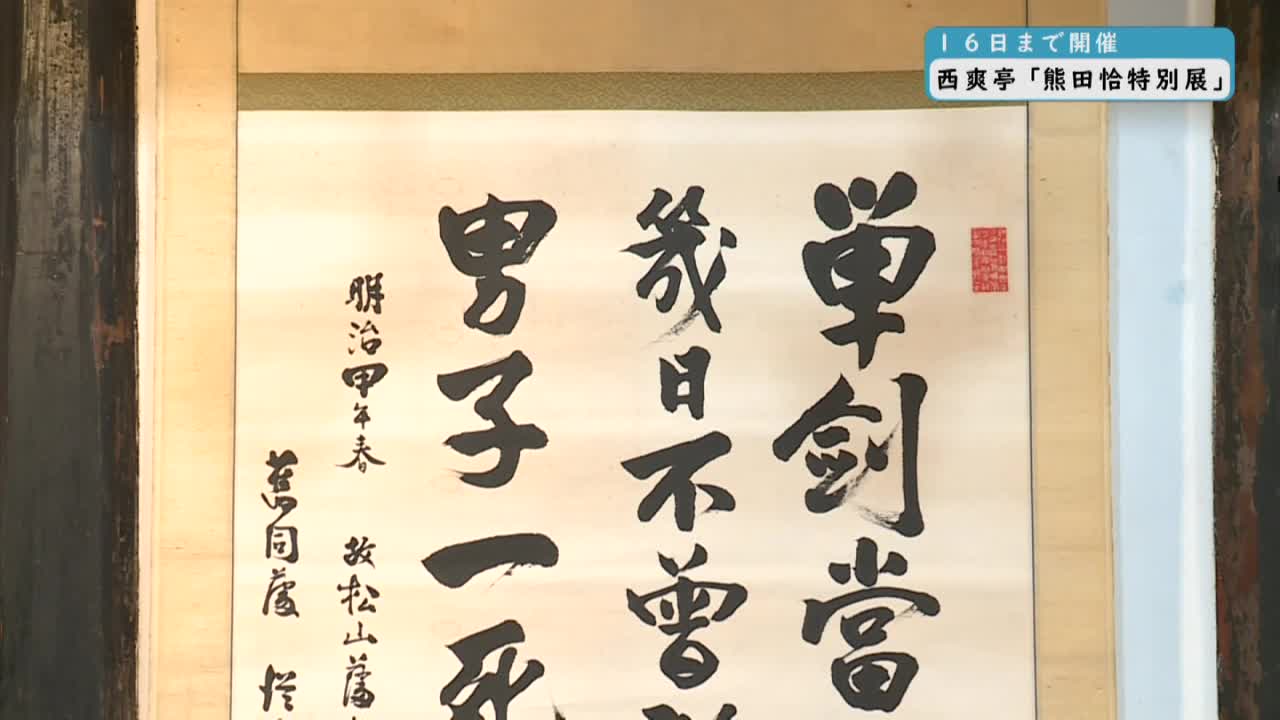 16日まで開催
西爽亭「熊田恰特別展」
単剣當
幾日不曾
男子一死
明治甲午春 故松山藩
舊同藩